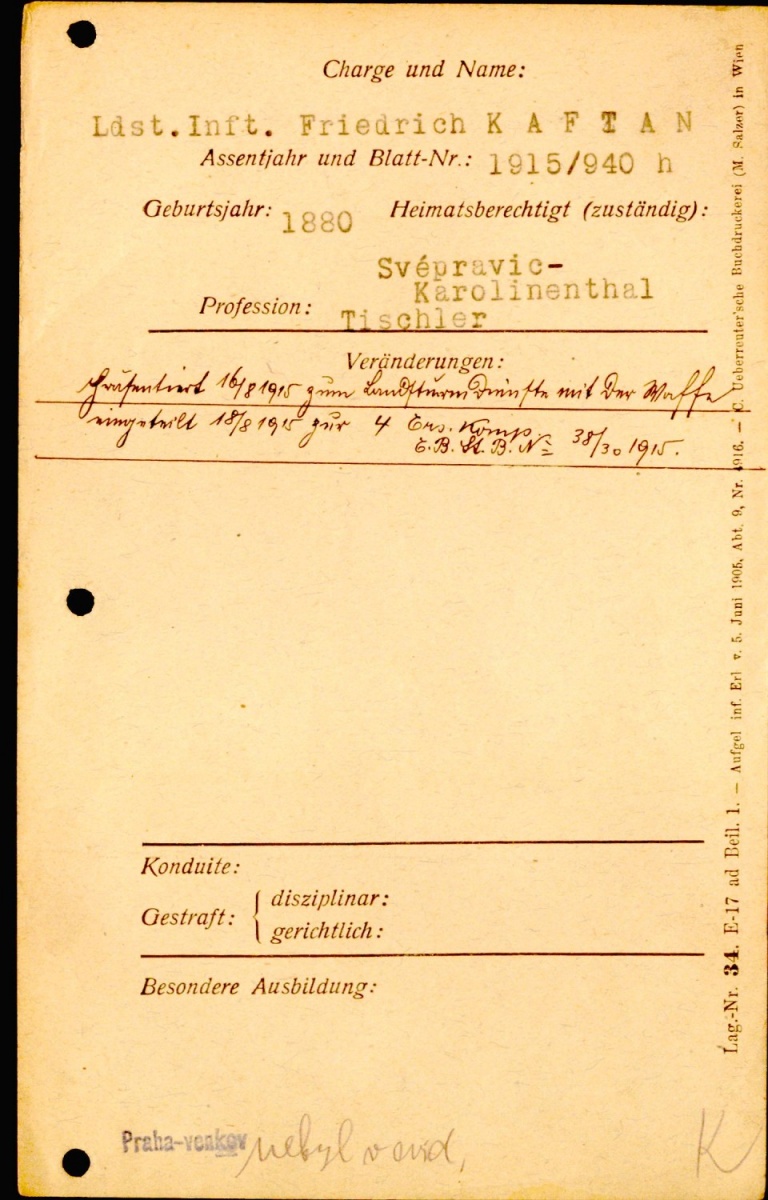 Charge und Name:
Ldst.Inft. Friedrich K A F T A N
Assentjahr und Blatt-Nr.: 1915/940 h
Geburtsjahr: 1880 Heimatsberechtigt (zuständig):
Svépravic-
Karolinenthal
Profession: Tischler
Veränderungen:
Präsentiert 16/8 1915 zum Landsturmdienste mit der Waffe
eingeteilt 18/8 1915 zur 4 Ers. Komp.
E.B. St. B. No 38/30 1915.
Konduite:
Gestraft: { disziplinar:
gerichtlich:
Besondere Ausbildung:
Praha-venkov nebyl v evid,
K
Lag.-Nr. 34. E-17 ad Beil. 1. — Aufgel inf. Erl v. 5. Juni 1905, Abt. 9, Nr. 4916. — C. Ueberreuter'sche Buchdruckerei (M. Salzer) in Wien